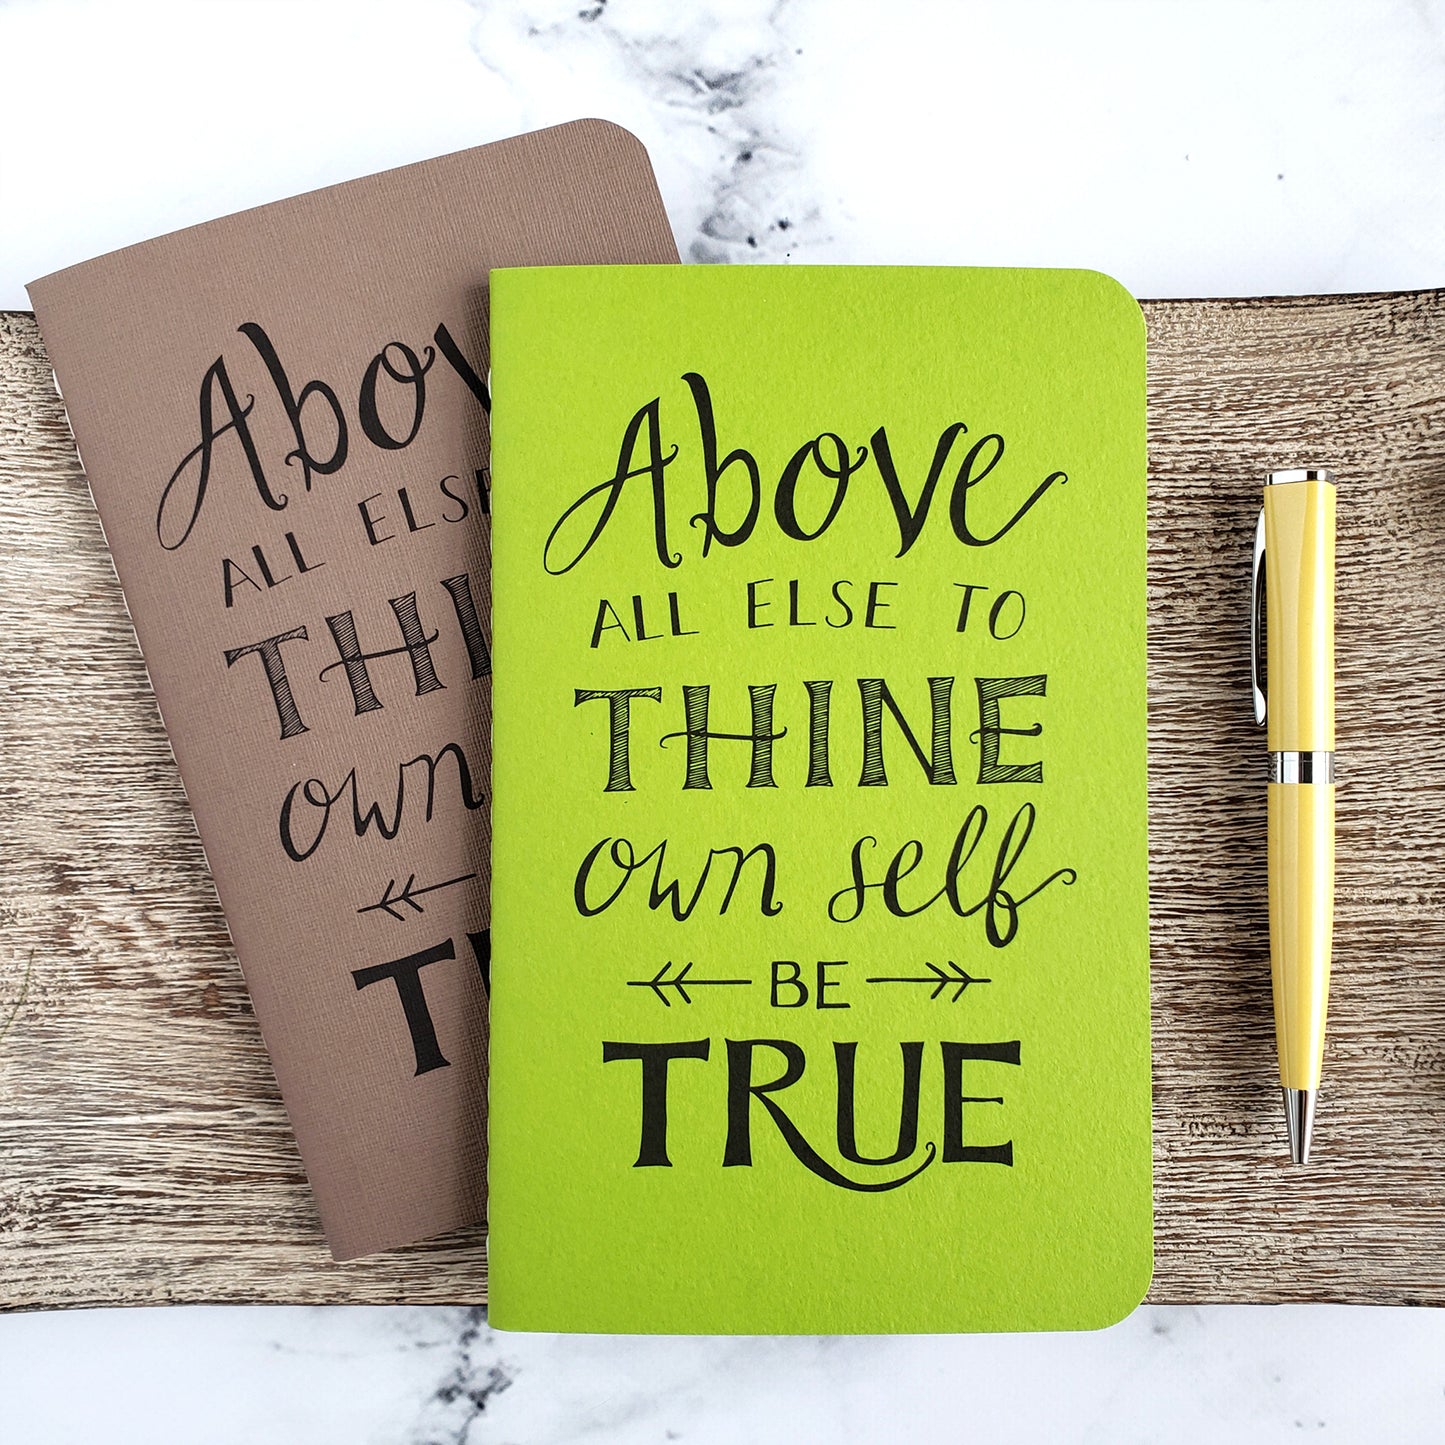 Above
ALL ELSE
THI
own
T
Above
ALL ELSE TO
THINE
own self
BE
TRUE